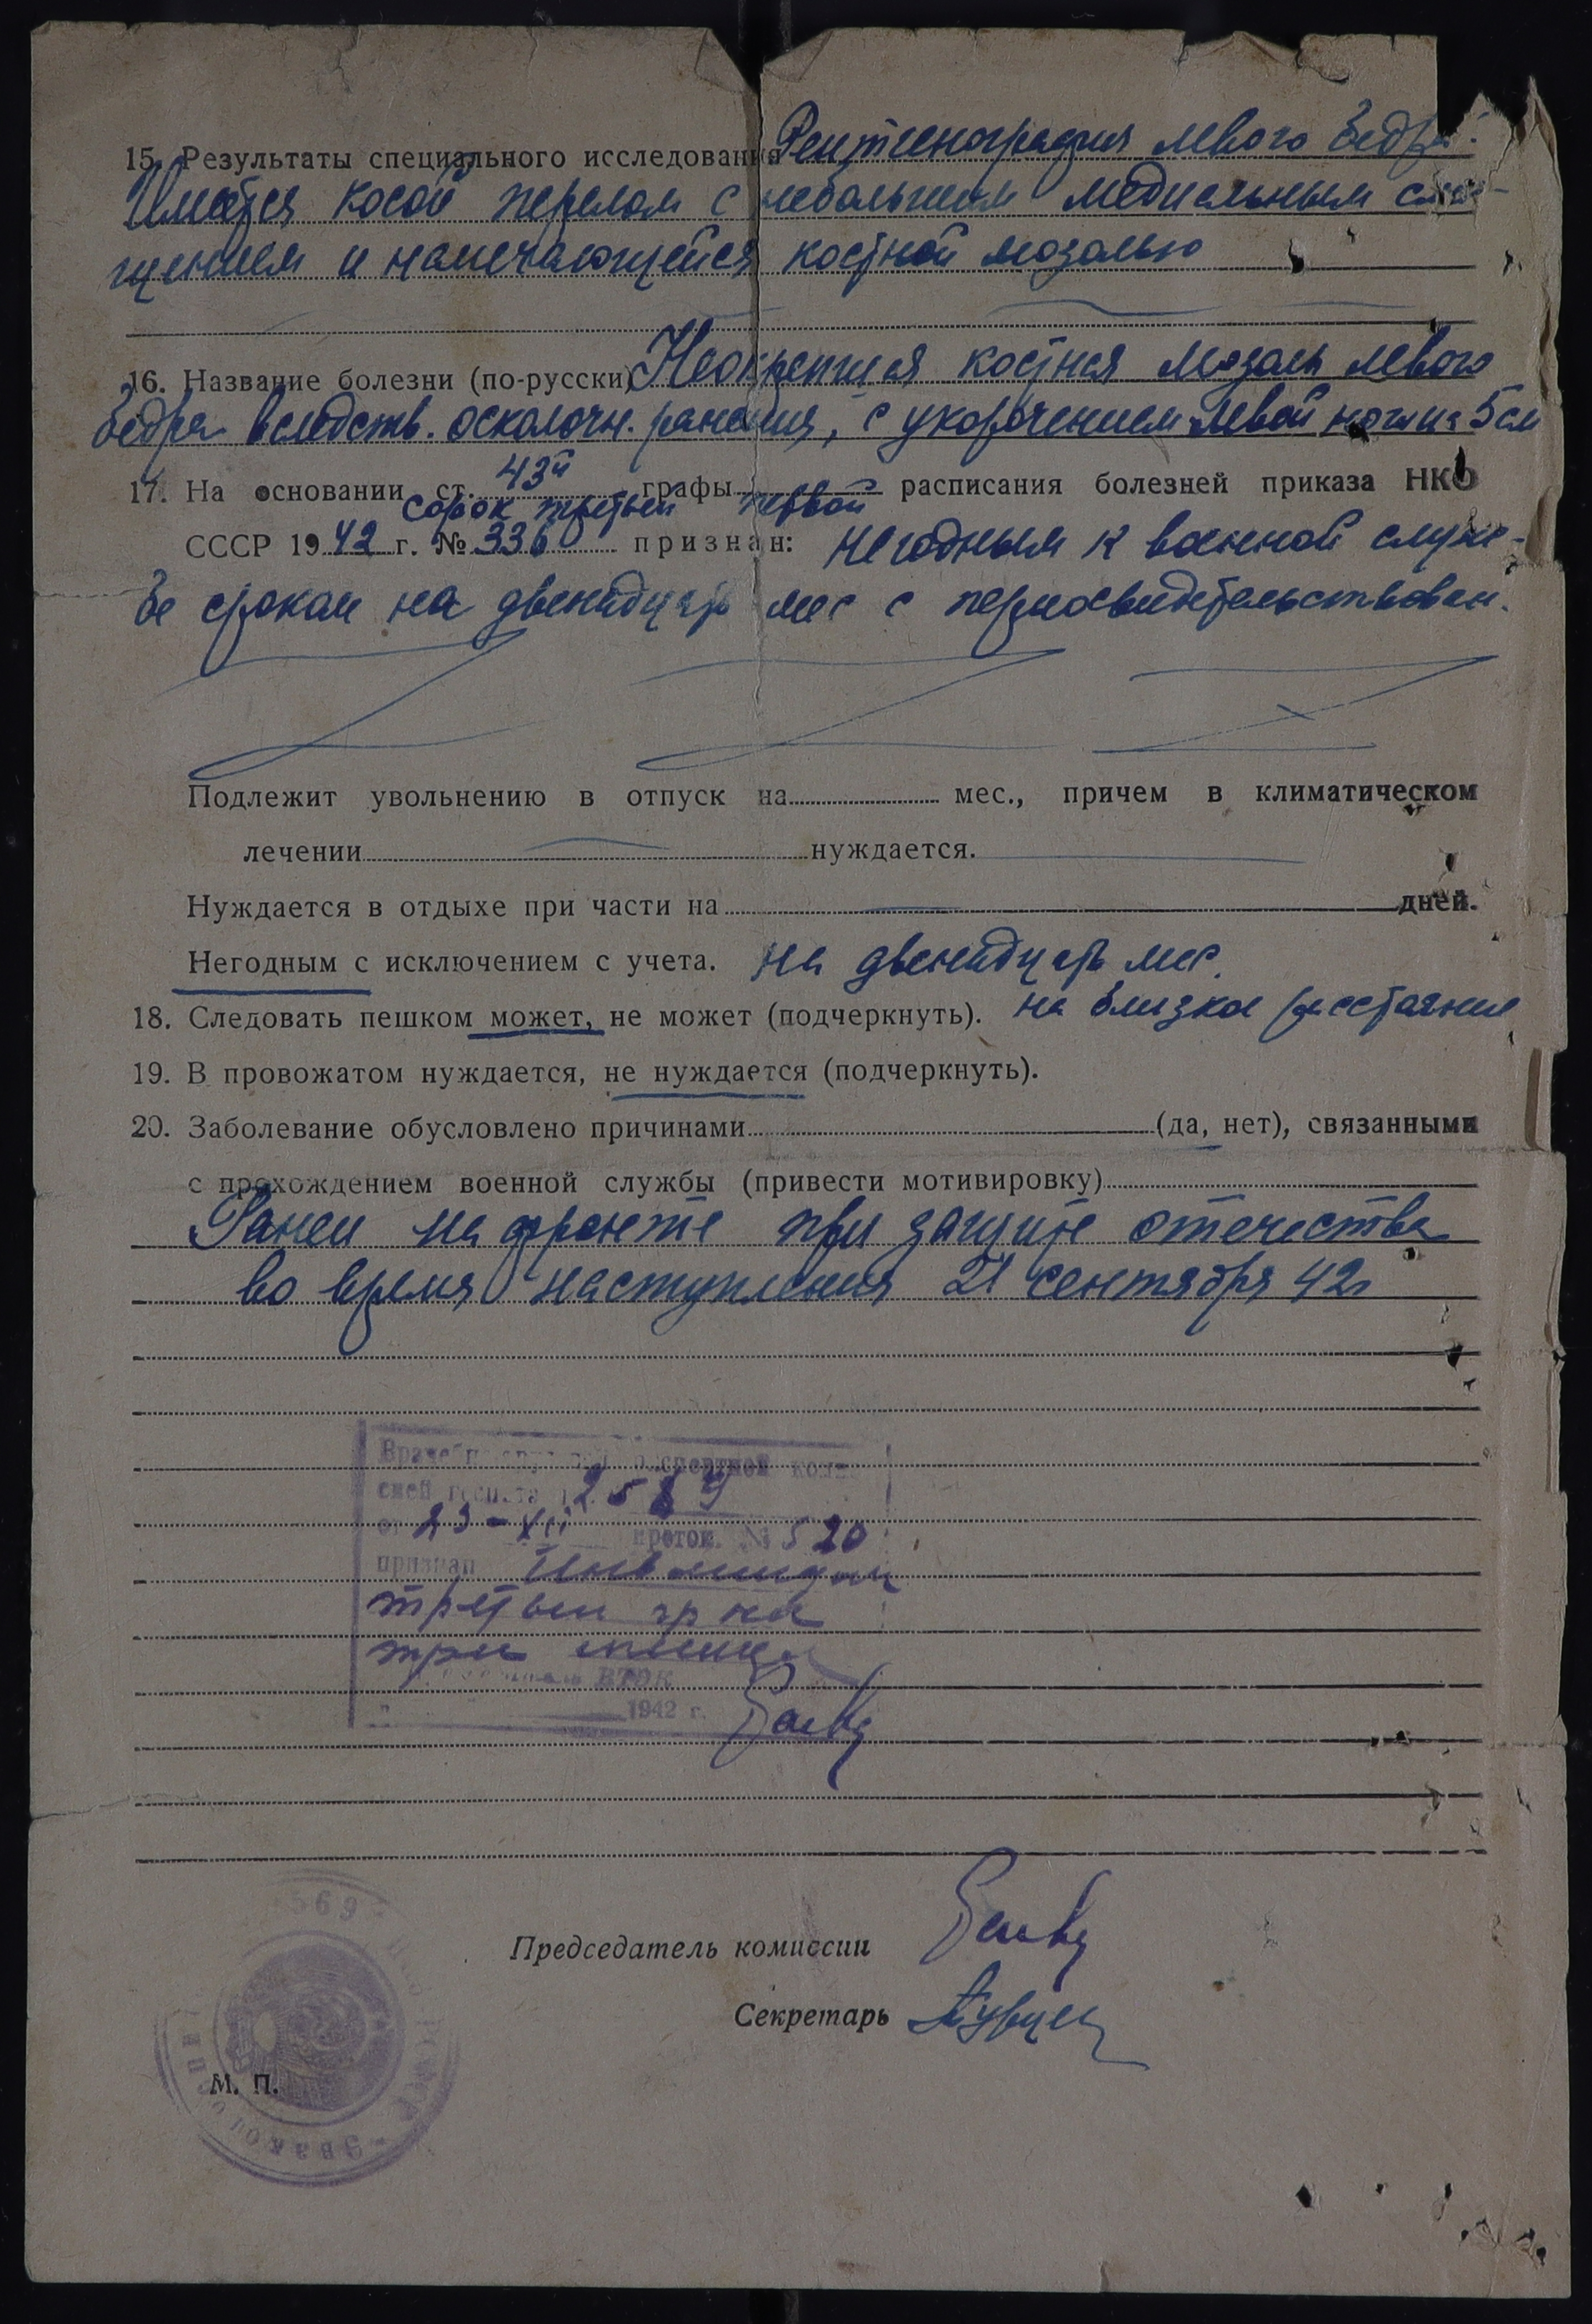 15. Результаты специального исследования Рентгенография левого бедра:
Имеется косой перелом с небольшим медиальным сме-
щением и намечающейся костной мозолью
16. Название болезни (по-русски) Неокрепшая костная мозоль левого
бедра вследств. осколочн. ранения, с укорочением левой ноги на 5 см
17. На основании ст. 43й графы расписания болезней приказа НКО
сорок третьей первой
СССР 1942 г. № 336 признан: негодным к военной служ-
бе сроком на двенадцать мес с переосвидетельствован.
Подлежит увольнению в отпуск на мес., причем в климатическом
лечении нуждается.
Нуждается в отдыхе при части на дней.
Негодным с исключением с учета. на двенадцать мес.
18. Следовать пешком может, не может (подчеркнуть). на близкое расстояние
19. В провожатом нуждается, не нуждается (подчеркнуть).
20. Заболевание обусловлено причинами (да, нет), связанными
с прохождением военной службы (привести мотивировку)
Ранен на фронте при защите отечества
во время наступления 21 сентября 42г
экспертной
от 23-XII проток. № 520
признан Инвалидом
третьей гр на
три месяца
ВТЭК
1942 г.
Председатель комиссии
Секретарь
М. П.